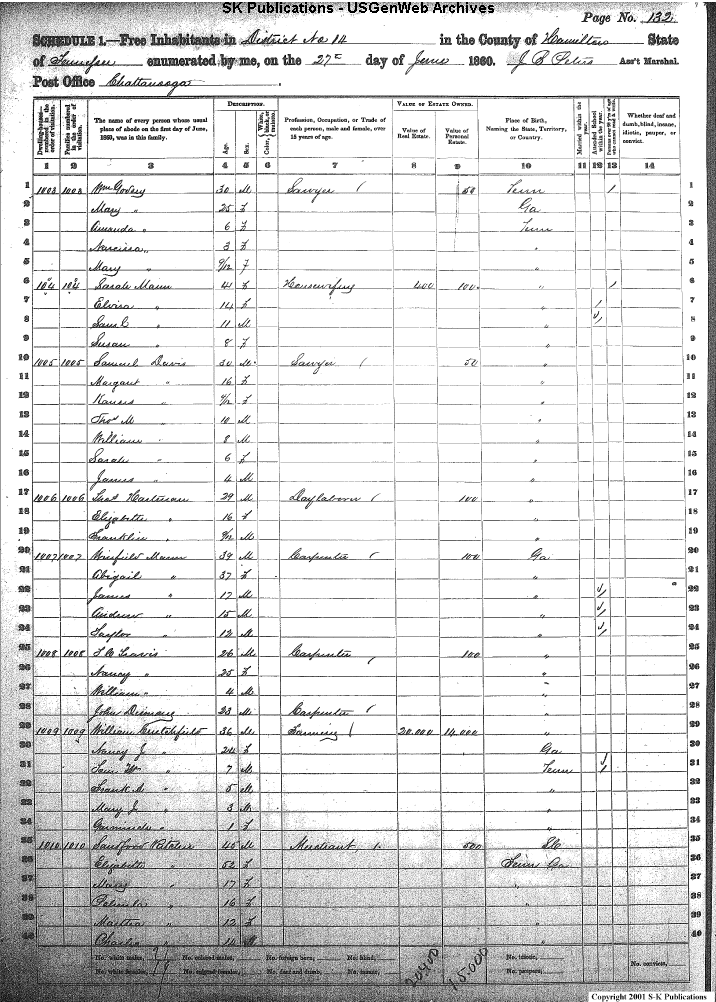 SK Publications - USGenWeb Archives
Page No. 132
SCHEDULE 1.—Free Inhabitants in District No 14 in the County of Hamilton State
of Tennessee enumerated by me, on the 27 day of June 1860. J B Peters Ass't Marshal.
Post Office Chattanooga
Dwelling-houses numbered in the order of visitation.
Families numbered in the order of visitation.
The name of every person whose usual place of abode on the first day of June, 1860, was in this family.
DESCRIPTION.
Age.
Sex.
Color, White, black, or mulatto.
Profession, Occupation, or Trade of each person, male and female, over 15 years of age.
VALUE OF ESTATE OWNED.
Value of Real Estate.
Value of Personal Estate.
Place of Birth, Naming the State, Territory, or Country.
Married within the year.
Attended School within the year.
Whether deaf and dumb, blind, insane, idiotic, pauper, or convict.
1 2 3 4 5 6 7 8 9 10 11 12 13 14
1 1003 1003 Wm 30 M Sawyer 50 Tenn / 1
2 Mary " 25 f Ga 2
3 Amanda " 6 f Tenn 3
4 Narcissa " 3 f " 4
5 Mary " 9/12 f " 5
6 1004 1004 Sarah Mann 41 f Housewifery 400 100 " / 6
7 Elvira " 14 f " / 7
8 Saml C " 11 M " / 8
9 Susan " 8 f " 9
10 1005 1005 Samuel Davis 30 M Sawyer 50 10
11 Margaret " 16 f " 11
12 Kansas " /12 f " 12
13 Thos M " 10 M 13
14 William " 8 M " 14
15 Sarah " 6 f 15
16 James " 4 M 16
17 1006 1006 Hartman 29 M Daylaborer 100 " 17
18 Elizabeth " 16 f " 18
19 Franklin " /12 M " 19
20 1007 1007 Winfield Mann 39 M Carpenter 100 Ga 20
21 Abigail " 37 f " 21
22 James " 17 M " / 22
23 Andrew " 15 M " / 23
24 Taylor " 12 M " / 24
25 1008 1008 Travis 26 M Carpenter 100 " 25
26 Nancy " 25 f " 26
27 William " 4 M " 27
28 John 23 M Carpenter 28
29 1009 1009 William Crutchfield 36 M Farming 20.000 14.000 " 29
30 Nancy J " 24 f Ga 30
31 W " 7 M Tenn / 31
32 Frank A " 5 M " 32
33 Mary J " 3 33
34 1 f " 34
35 1010 1010 Sandford 45 M Merchant 500 35
36 Elizabeth " 52 f Ga 36
37 Mary " 17 f 37
38 " 16 f 38
39 Martha " 12 f " 39
40 Charles " 14 M 40
No. white males, No. colored males, No. foreign born, No. blind, No. idiotic, No. convicts,
No. white females, No. colored females, No. deaf and dumb, No. insane, No. paupers,
20400 15.000
Copyright 2001 S-K Publications